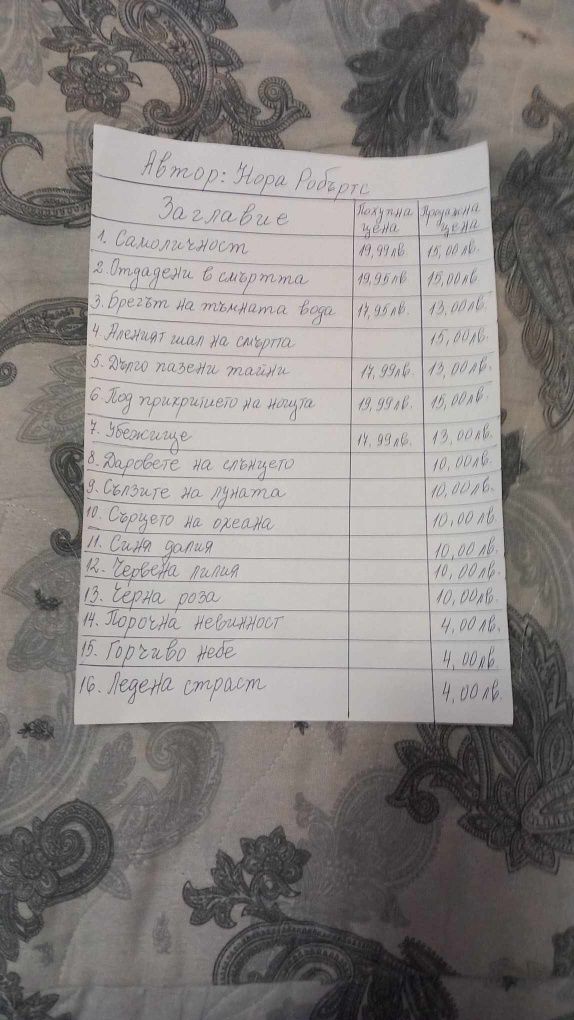 Автор: Нора Робъртс
Заглавие Покупна цена Продажна цена
1. Самоличност 19,99лв. 15,00лв.
2. Отдадени в смъртта 19,95лв 15,00лв.
3. Брегът на тъмната вода 17,95лв. 13,00лв.
4. Аленият шал на смъртта 15,00лв.
5. Дълго пазени тайни 17,99лв. 13,00лв.
6. Под прикритието на нощта 19,99лв. 15,00лв.
7. Убежище 17,99лв. 13,00лв.
8. Даровете на слънцето 10,00лв.
9. Сълзите на луната 10,00лв.
10. Сърцето на океана 10,00лв.
11. Синя далия 10,00лв.
12. Червена лилия 10,00лв.
13. Черна роза 10,00лв.
14. Порочна невинност 4,00лв.
15. Горчиво небе 4,00лв.
16. Ледена страст 4,00лв.